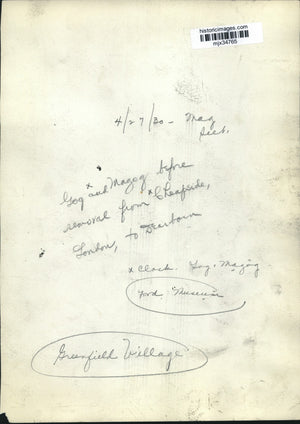 historicimages.com
mjx34765
4/27/30 - Mag
Sect.
Gog and Magog before
removal from Cheapside,
London, to Dearborn
x Clock. Gog, Magog
Ford Museum
Greenfield Village